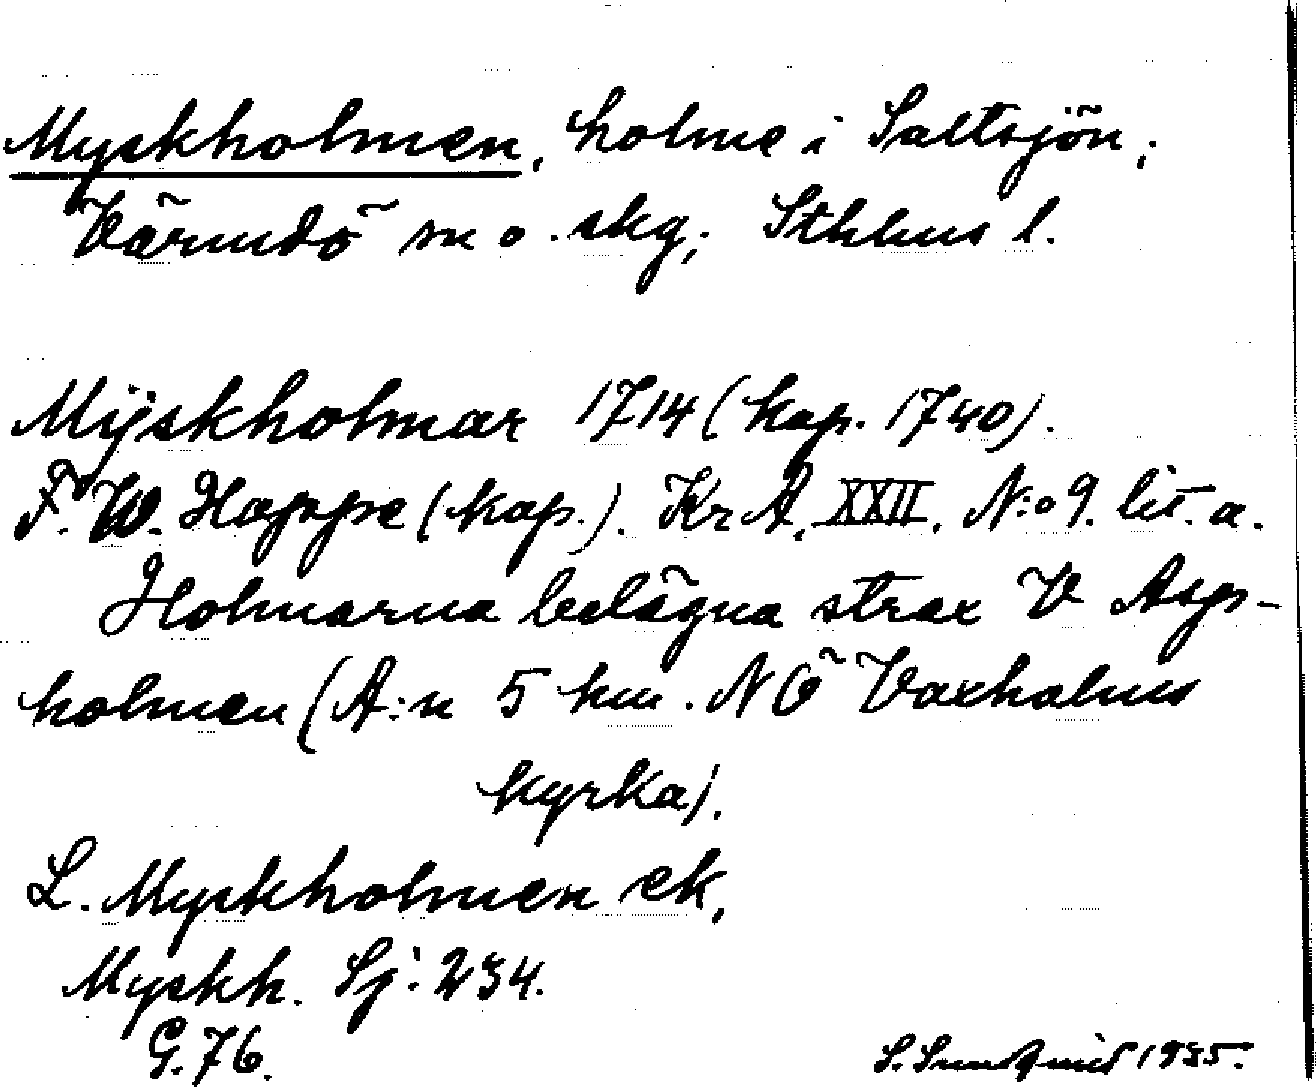 Myskholmen, holme i Saltsjön;
Värmdö sn o. skg; Sthlms l.
Mÿskholmar 1714 (kop. 1740).
F. W. Hoppe (kop.). KrA, XXII, N:o 9. lit. a.
Holmarna belägna strax V Asp-
holmen (A:n 5 km. NÖ Vaxholms
kyrka).
L. Myskholmen ek,
Myskh. Sj: 234.
G. 76.
S. Sundquist 1935.